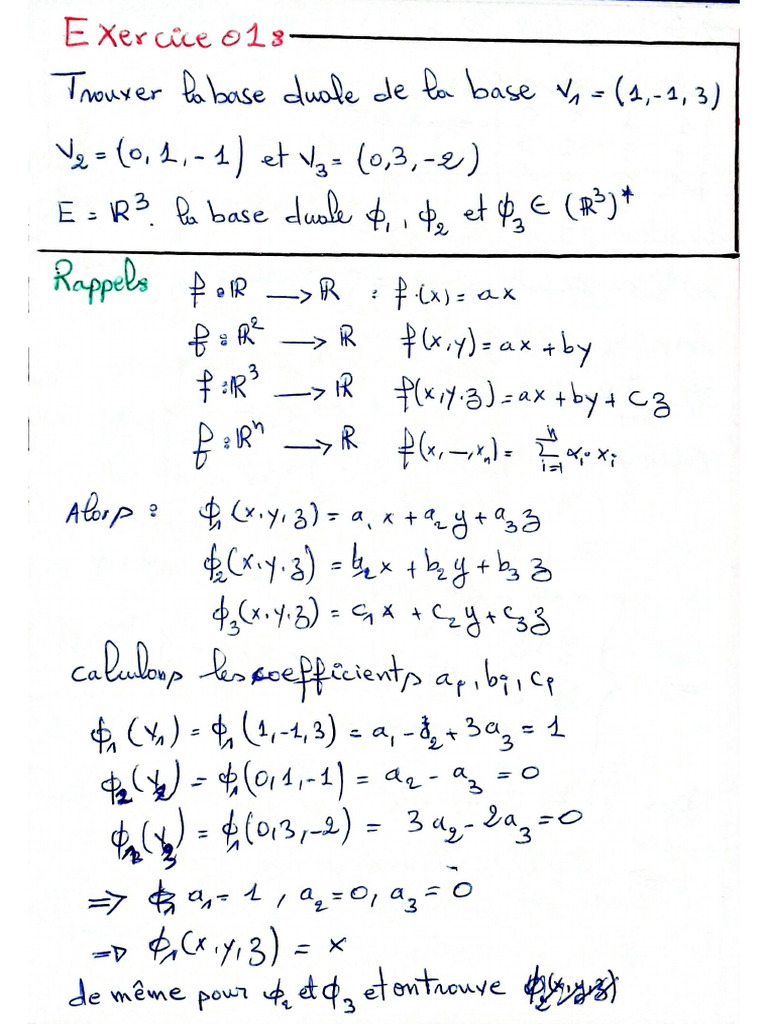 Exercice 01:
Trouver la base duale de la base V₁ = (1,-1,3)
V₂ = (0,1,-1) et V₃ = (0,3,-2)
E = ℝ³. la base duale ϕ₁, ϕ₂ et ϕ₃ ∈ (ℝ³)*
Rappels f : ℝ → ℝ : f(x) = ax
f : ℝ² → ℝ f(x,y) = ax + by
f : ℝ³ → ℝ f(x,y,z) = ax + by + cz
f : ℝⁿ → ℝ f(x, —, xₙ) = ∑ⁿᵢ₌₁ αᵢ xᵢ
Alors : ϕ₁(x,y,z) = a₁x + a₂y + a₃z
ϕ₂(x,y,z) = b₂x + b₂y + b₃z
ϕ₃(x,y,z) = c₁x + c₂y + c₃z
calculons les coefficients aᵢ, bᵢ, cᵢ
ϕ₁(V₁) = ϕ₁(1,-1,3) = a₁ - a₂ + 3a₃ = 1
ϕ₁(V₂) = ϕ₁(0,1,-1) = a₂ - a₃ = 0
ϕ₁(V₃) = ϕ₁(0,3,-2) = 3a₂ - 2a₃ = 0
⇒ a₁ = 1, a₂ = 0, a₃ = 0
⇒ ϕ₁(x,y,z) = x
de même pour ϕ₂ et ϕ₃ et on trouve